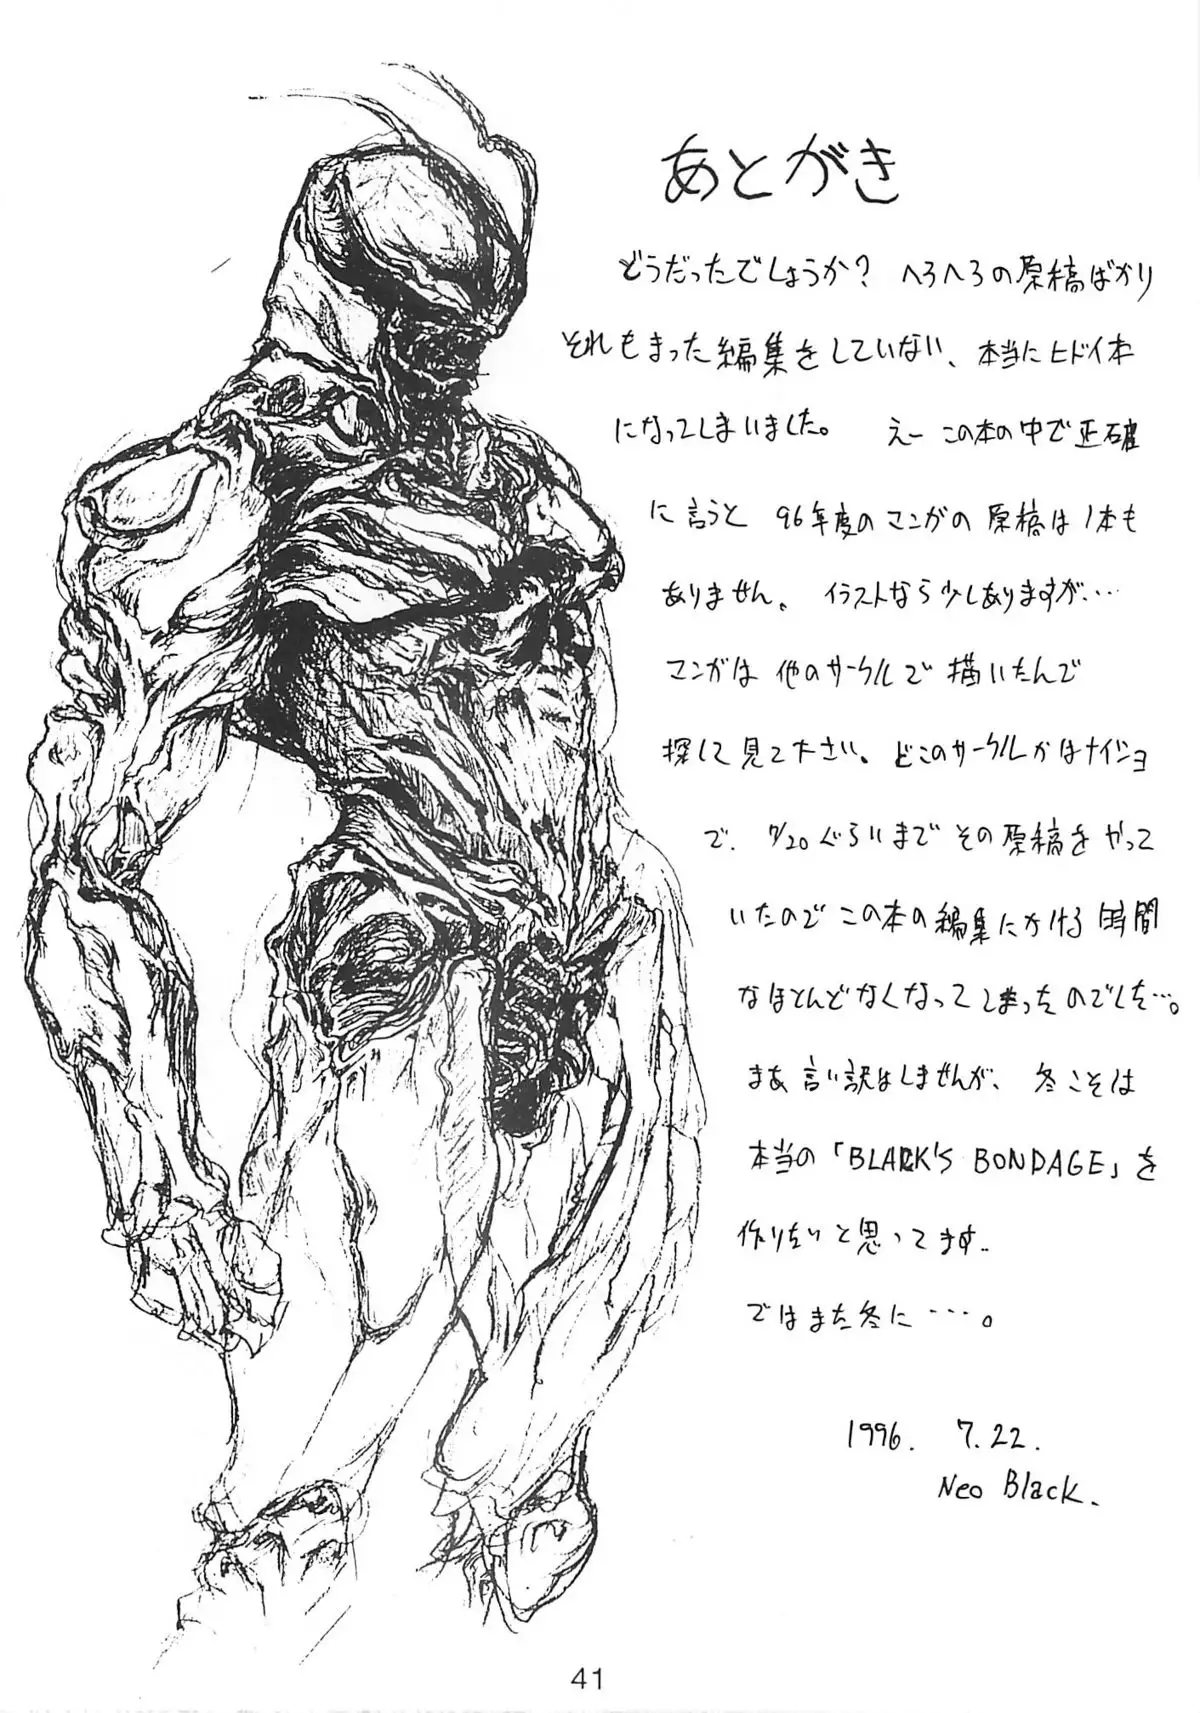 あとがき
どうだったでしょうか? へろへろの原稿ばかり
それもまった編集をしていない、本当にヒドイ本
になってしまいました。 えー この本の中で正確
に言うと 96年度のマンガの原稿は1本も
ありません。 イラストなら少しありますが…
マンガは 他のサークルで描いたんで
探して見て下さい。どこのサークルかはナイショ
で、7/20ぐらいまでその原稿をやって
いたのでこの本の編集にかける時間
なほとんどなくなってしまったのでした…。
まあ言い訳はしませんが、冬こそは
本当の「BLACK'S BONDAGE」を
作りたいと思ってます。
ではまた冬に…。
1996. 7.22.
Neo Black.
41